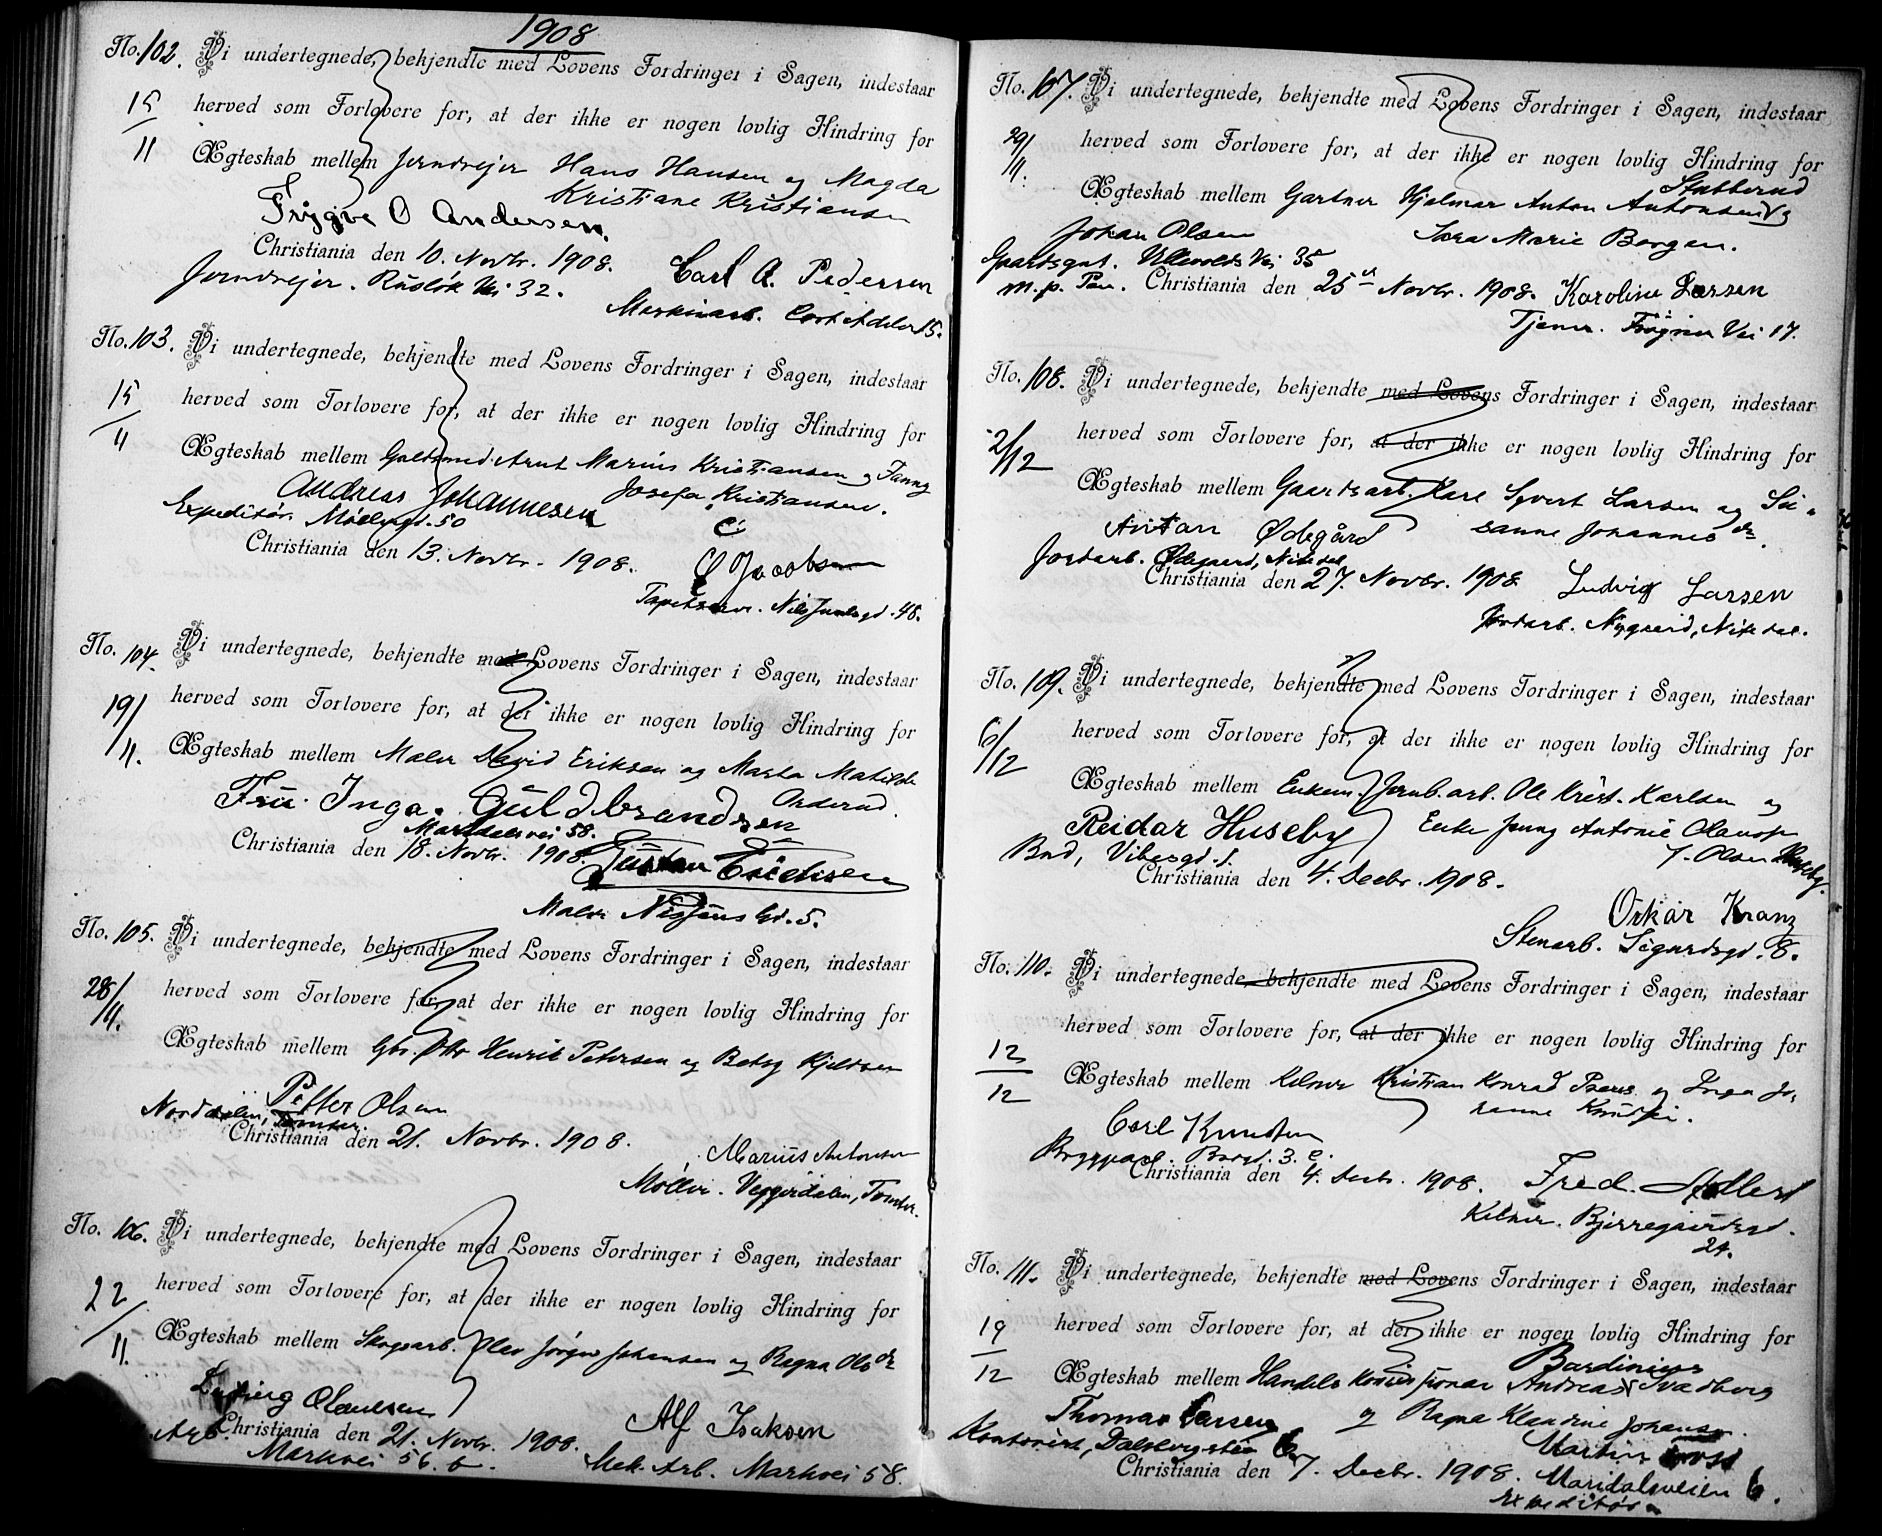 1908
No. 102. Vi undertegnede, bekjendte med Lovens Fordringer i Sagen, indestaar
15/11 herved som Forlovere for, at der ikke er nogen lovlig Hindring for
Ægteskab mellem Jerndrejer Hans Hansen og Magda
Kristiane Kristiansen
Trygve O Andersen.
Christiania den 10. Novbr. 1908.
Carl A. Pedersen
Jerndrejer. Rusløk Vei 32.
Maskinarb. Cort Adeler 15.
No. 103. Vi undertegnede, bekjendte med Lovens Fordringer i Sagen, indestaar
15/11 herved som Forlovere for, at der ikke er nogen lovlig Hindring for
Ægteskab mellem Guldsmed. Arnt Marius Kristiansen og Fanny
Josefa Kristiansen.
Andreas Johannesen
Expeditør. Møllergd. 50
Christiania den 13. Novbr. 1908.
O Jacobsen
Nils Juulsgd. 48.
No. 104. Vi undertegnede, bekjendte med Lovens Fordringer i Sagen, indestaar
19/11. herved som Forlovere for, at der ikke er nogen lovlig Hindring for
Ægteskab mellem Maler David Eriksen og Marta Matilde
Onderud.
Fru. Inga. Guldbrandsen
Maridalsvei 58.
Christiania den 18. Novbr. 1908.
Gustav Erichsen
Maler Nissens Gd. 5.
No. 105. Vi undertegnede, bekjendte med Lovens Fordringer i Sagen, indestaar
28/11. herved som Forlovere for, at der ikke er nogen lovlig Hindring for
Ægteskab mellem Gbr. Otto Henrik Petersen og Betsy Kjeldsen
Petter Olsen
Norddalen, Tomter.
Christiania den 21. Novbr. 1908.
Marius Antonsen
Møller. Veggerdalen, Tomter.
No. 106. Vi undertegnede, bekjendte med Lovens Fordringer i Sagen, indestaar
22/11. herved som Forlovere for, at der ikke er nogen lovlig Hindring for
Ægteskab mellem Skogsarb. Olav Jørgen Johansen og Ragna Olsdr
Olausen
Christiania den 21. Novbr. 1908.
Alf Isaksen
Arb. Markvei 56. b.
Mek. Arb. Markvei 58.
No. 107. Vi undertegnede, bekjendte med Lovens Fordringer i Sagen, indestaar
29/11. herved som Forlovere for, at der ikke er nogen lovlig Hindring for
Stubberud
Ægteskab mellem Gartner Hjalmar Anton Antonsen og
Sara Marie Borgen.
Johan Olsen
Gaardsgut. Ullevolds Vei 35
m. p. Pen. Christiania den 25 Novbr. 1908.
Karoline Larsen
Tjener. Frogner Vei 17.
No. 108. Vi undertegnede, bekjendte med Lovens Fordringer i Sagen, indestaar
2/12 herved som Forlovere for, at der ikke er nogen lovlig Hindring for
Ægteskab mellem Gaardsarb. Karl Syvert Larsen og Su-
sanne Johannesdr.
Anton Ødegård
Jordarb. Ødegaard, Nitedal
Christiania den 27. Novbr. 1908.
Ludvig Larsen
Jordarb. Nygaard, Nitedal.
No. 109. Vi undertegnede, bekjendte med Lovens Fordringer i Sagen, indestaar
6/12 herved som Forlovere for, at der ikke er nogen lovlig Hindring for
Ægteskab mellem Enkem. Jernb.arb. Ole Krist. Karlsen og
Enke Jenny Antonie Olavsen
f. Olsen Huseby.
Reidar Huseby
Bud, Vibesgd. 1.
Christiania den 4. Decbr. 1908.
Oskar Kranz
Stenarb. Sigurdsgd. 8.
No. 110. Vi undertegnede bekjendte med Lovens Fordringer i Sagen, indestaar
12/12 herved som Forlovere for, at der ikke er nogen lovlig Hindring for
Ægteskab mellem Kelner Kristian Konrad og Inga Jo-
hanne Knudsen.
Carl Knudsen
Borgd. 3. c.
Christiania den 4. Decbr. 1908.
Fred.
Kelner. Bjerregaardsgd.
24.
No. 111. Vi undertegnede, bekjendte med Lovens Fordringer i Sagen, indestaar
19/12 herved som Forlovere for, at der ikke er nogen lovlig Hindring for
Bardinius
Ægteskab mellem Handels Andreas Svadberg
og Ragna Klaudine Johansen.
Thomas Larsen
Kontorist, Dalsbergstien 6
Christiania den 7. Decbr. 1908.
Martin
Maridalsveien 6.
Expeditør